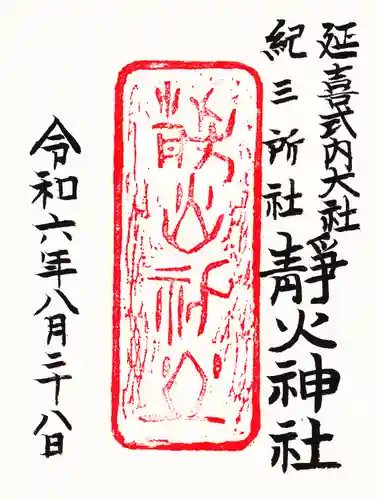 延喜式内大社
紀三所社
靜火神社
靜火神社
令和六年八月二十八日